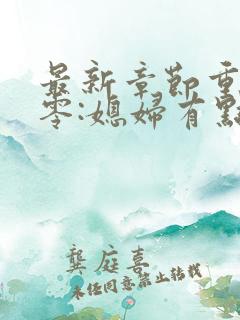 最新章節重
零:媳婦有點
龔庭喜
未经同意禁止转载